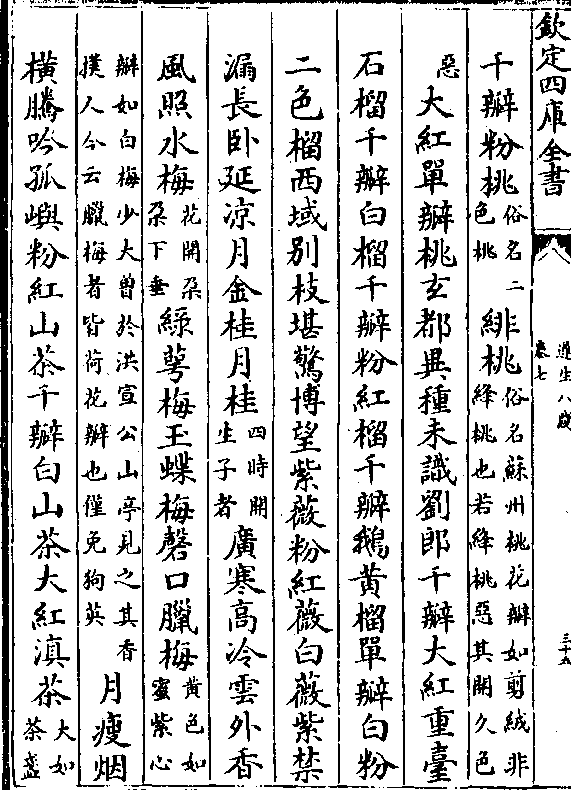 欽定四庫全書
遵生八牋
卷七
三十五
千瓣粉桃俗名二色桃緋桃俗名蘇州桃花瓣如剪絨非絳桃也若絳桃惡其開久色
惡大紅單瓣桃玄都異種未識劉郎千瓣大紅重臺
石榴千瓣白榴千瓣粉紅榴千瓣鵝黃榴單瓣白粉
二色榴西域別枝堪驚博望紫薇粉紅薇白薇紫禁
漏長卧延凉月金桂月桂四時開生子者廣寒高冷雲外香
風照水梅花開朶朶下垂綠萼梅玉蝶梅磬口臘梅黃色如蜜紫心
瓣如白梅少大曽於洪宣公山亭見之其香撲人今云臘梅者皆荷花瓣也僅免狗英月瘦烟
橫騰吟孤嶼粉紅山茶千瓣白山茶大紅滇茶大如茶盞